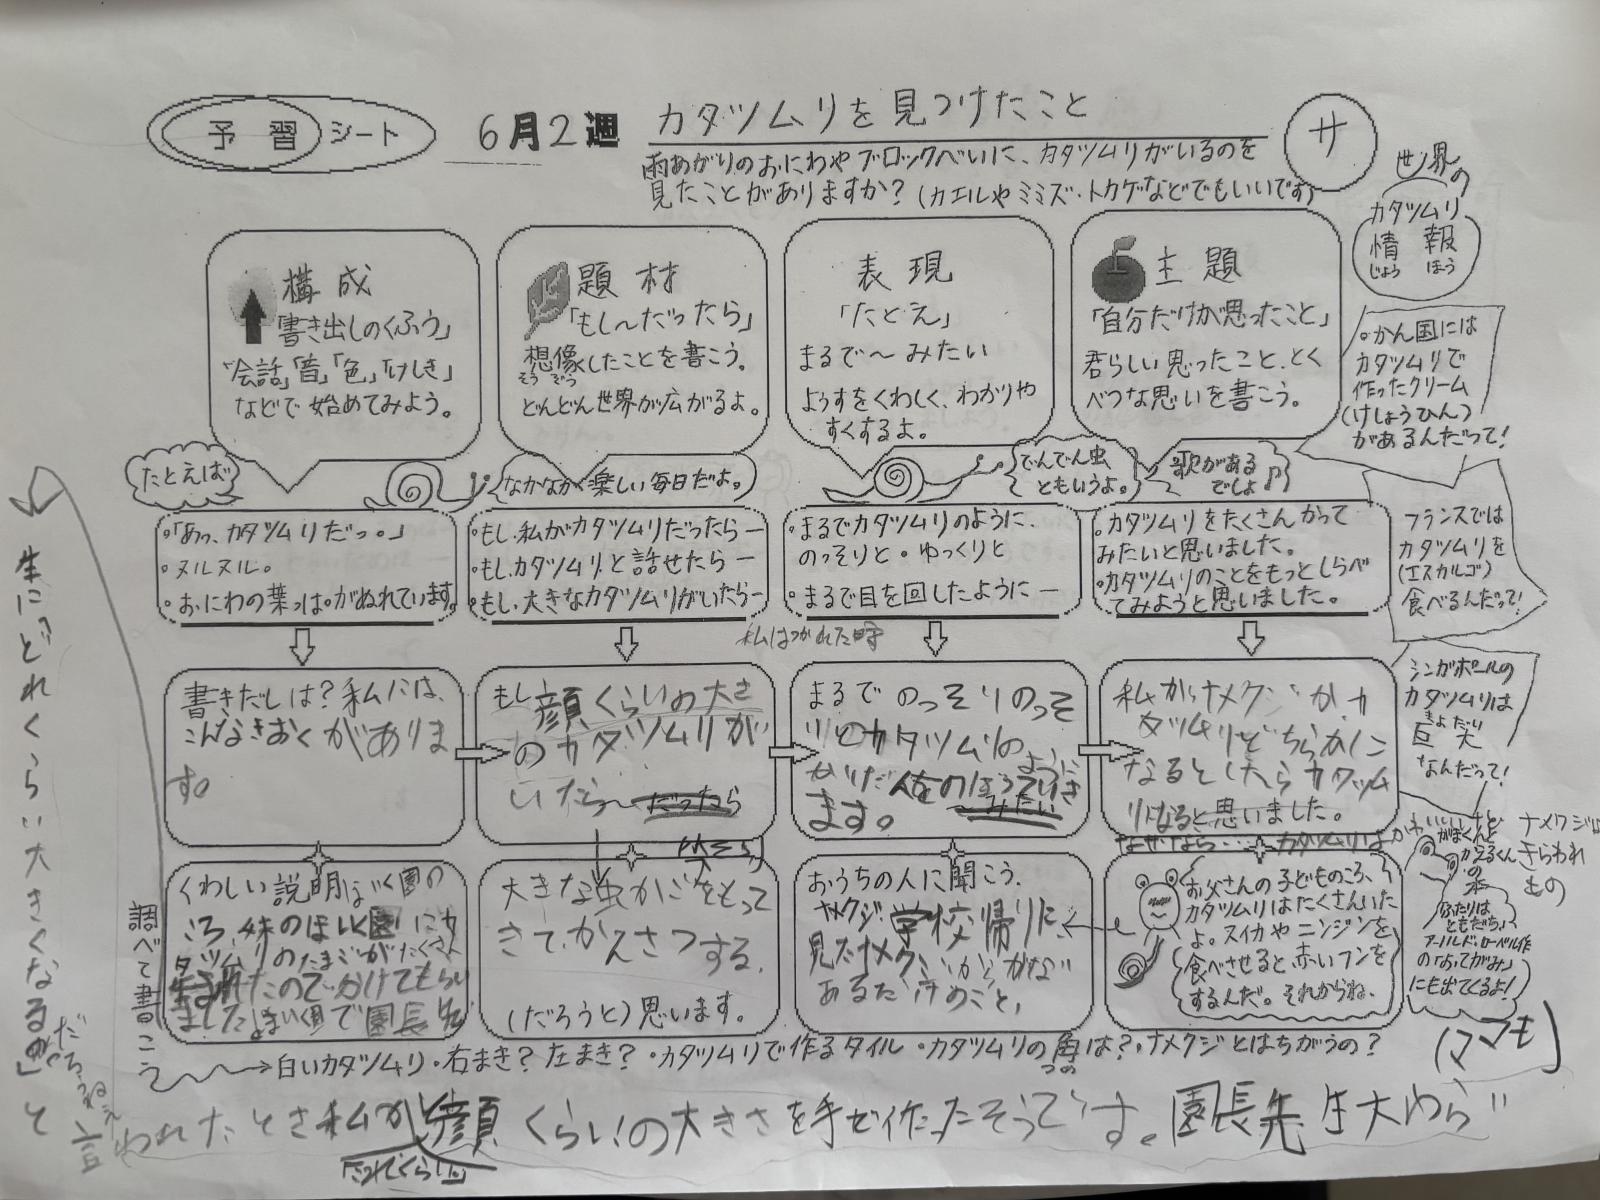 予習シート
6月2週
カタツムリを見つけたこと
サ
雨あがりのおにわやブロックべいに、カタツムリがいるのを
見たことがありますか？(カエルやミミズ・トカゲなどでもいいです)
構成
「書き出しのくふう」
"会話」「音」「色」「けしき」
などで始めてみよう。
題材
「もし〜だったら」
想像したことを書こう。
そうぞう
どんどん世界が広がるよ。
表現
「たとえ」
まるで〜みたい
ようすをくわしく、わかりや
すくするよ。
主題
「自分だけが思ったこと」
君らしい思ったこと、とく
べつな思いを書こう。
世界の
カタツムリ
情報
じょうほう
・かん国には
カタツムリで
作ったクリーム
(けしょうひん)
があるんだって!
フランスでは
カタツムリを
(エスカルゴ)
食べるんだって!
シンガポールの
カタツムリは
きょだい
巨大
なんだって!
たとえば
なかなか楽しい毎日だよ。
でんでん虫
ともいうよ。
歌がある
でしょ♪
・「あっ、カタツムリだっ。」
・ヌルヌル。
・おにわの葉っぱがぬれています。
・もし、私がカタツムリだったら―
・もし、カタツムリと話せたら―
・もし、大きなカタツムリがいたら―
・まるでカタツムリのように、
のっそりと・ゆっくりと
・まるで目を回したように―
・カタツムリをたくさんかって
みたいと思いました。
・カタツムリのことをもっとしらべ
てみようと思いました。
私はつかれた時
書きだしは？私には、
こんなきおくがありま
す。
もし顔くらいの大き
のカタツムリが
いたら
だったら
まるでのっそりのっそ
りとカタツムリのように
ます。
みたい
私がナメクジかカ
タツムリどちらかに
なるとしたらカタツム
リになると思いました。
なぜなら…カタツムリはかわいいけど
ナメクジは
きらわれ
もの
くわしい説明ほいく園の
ころ、妹のほいく園にカ
タツムリのたまごがたくさん
たのでわけてもらい
ましたほいく園で園長先
生に「どれくらい大きくなる
だろうねえ
の」と
言われたとき私が顔くらいの大きさを手で作ったそうです。園長先生大わらい
大きな虫かごをもって
きて、かんさつする、
(だろうと)思います。
おうちの人に聞こう。
ナメクジ
学校帰りに、
見たナメクジ
お父さんの子どものころ、
カタツムリはたくさんいた
よ。スイカやニンジンを
食べさせると、赤いフンを
するんだ。それからね、
がまくんと
かえるくん
の本
「ふたりは
ともだち」
アーノルド・ローベル作
の「おてがみ」
にも出てくるよ!
(ママも)
調べて書こう
→白いカタツムリ・右まき？左まき？・カタツムリで作るタイル・カタツムリの角は？・ナメクジとはちがうの？
つの